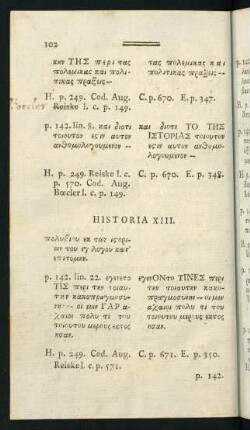 102
κην ΤΗΣ περι τας
πολεμικας και πολι-
τικας πραξεις--
τας πολεμικας και
πολιτικας πραξεις--
H. p. 249. Cod. Aug.
Reiske l. c. p. 149.
C. p. 670. E. p. 347.
p. 142. lin. 8. και διοτι
τοιουτον εςιν αυτον
ανθομολογουμενον --
και διοτι ΤΟ ΤΗΣ
ΙΣΤΟΡΙΑΣ τοιουτον
εςιν αυτον ανθομο-
λογουμενον --
H. p. 249. Reiske l. c.
p. 570. Cod. Aug.
Bœcler l. c. p. 149.
C. p. 670. E. p. 348.
HISTORIA XIII.
πολυβιου εκ της ιςοριων
του ιγ λογου κατ'
επιτομην.
p. 142. lin. 22. εγενετο
ΤΙΣ περι τον τοιου-
τον κακοπραγμοσυ-
νην -- οι μεν ΓΑΡ Α-
χαιοι πολυ τι του
τοιουτου μερους εκτος
ησαν.
εγενΟΝΤο ΤΙΝΕΣ περι
τον τοιουτον κακο-
πραγμοσυνην -- οι μεν
αχαιοι πολυ τι του
τοιουτου μερους εκτος
ησαν.
H. p. 249. Cod. Aug.
Reiske l. c. p. 571.
C. p. 671. E. p. 350.
p. 142.